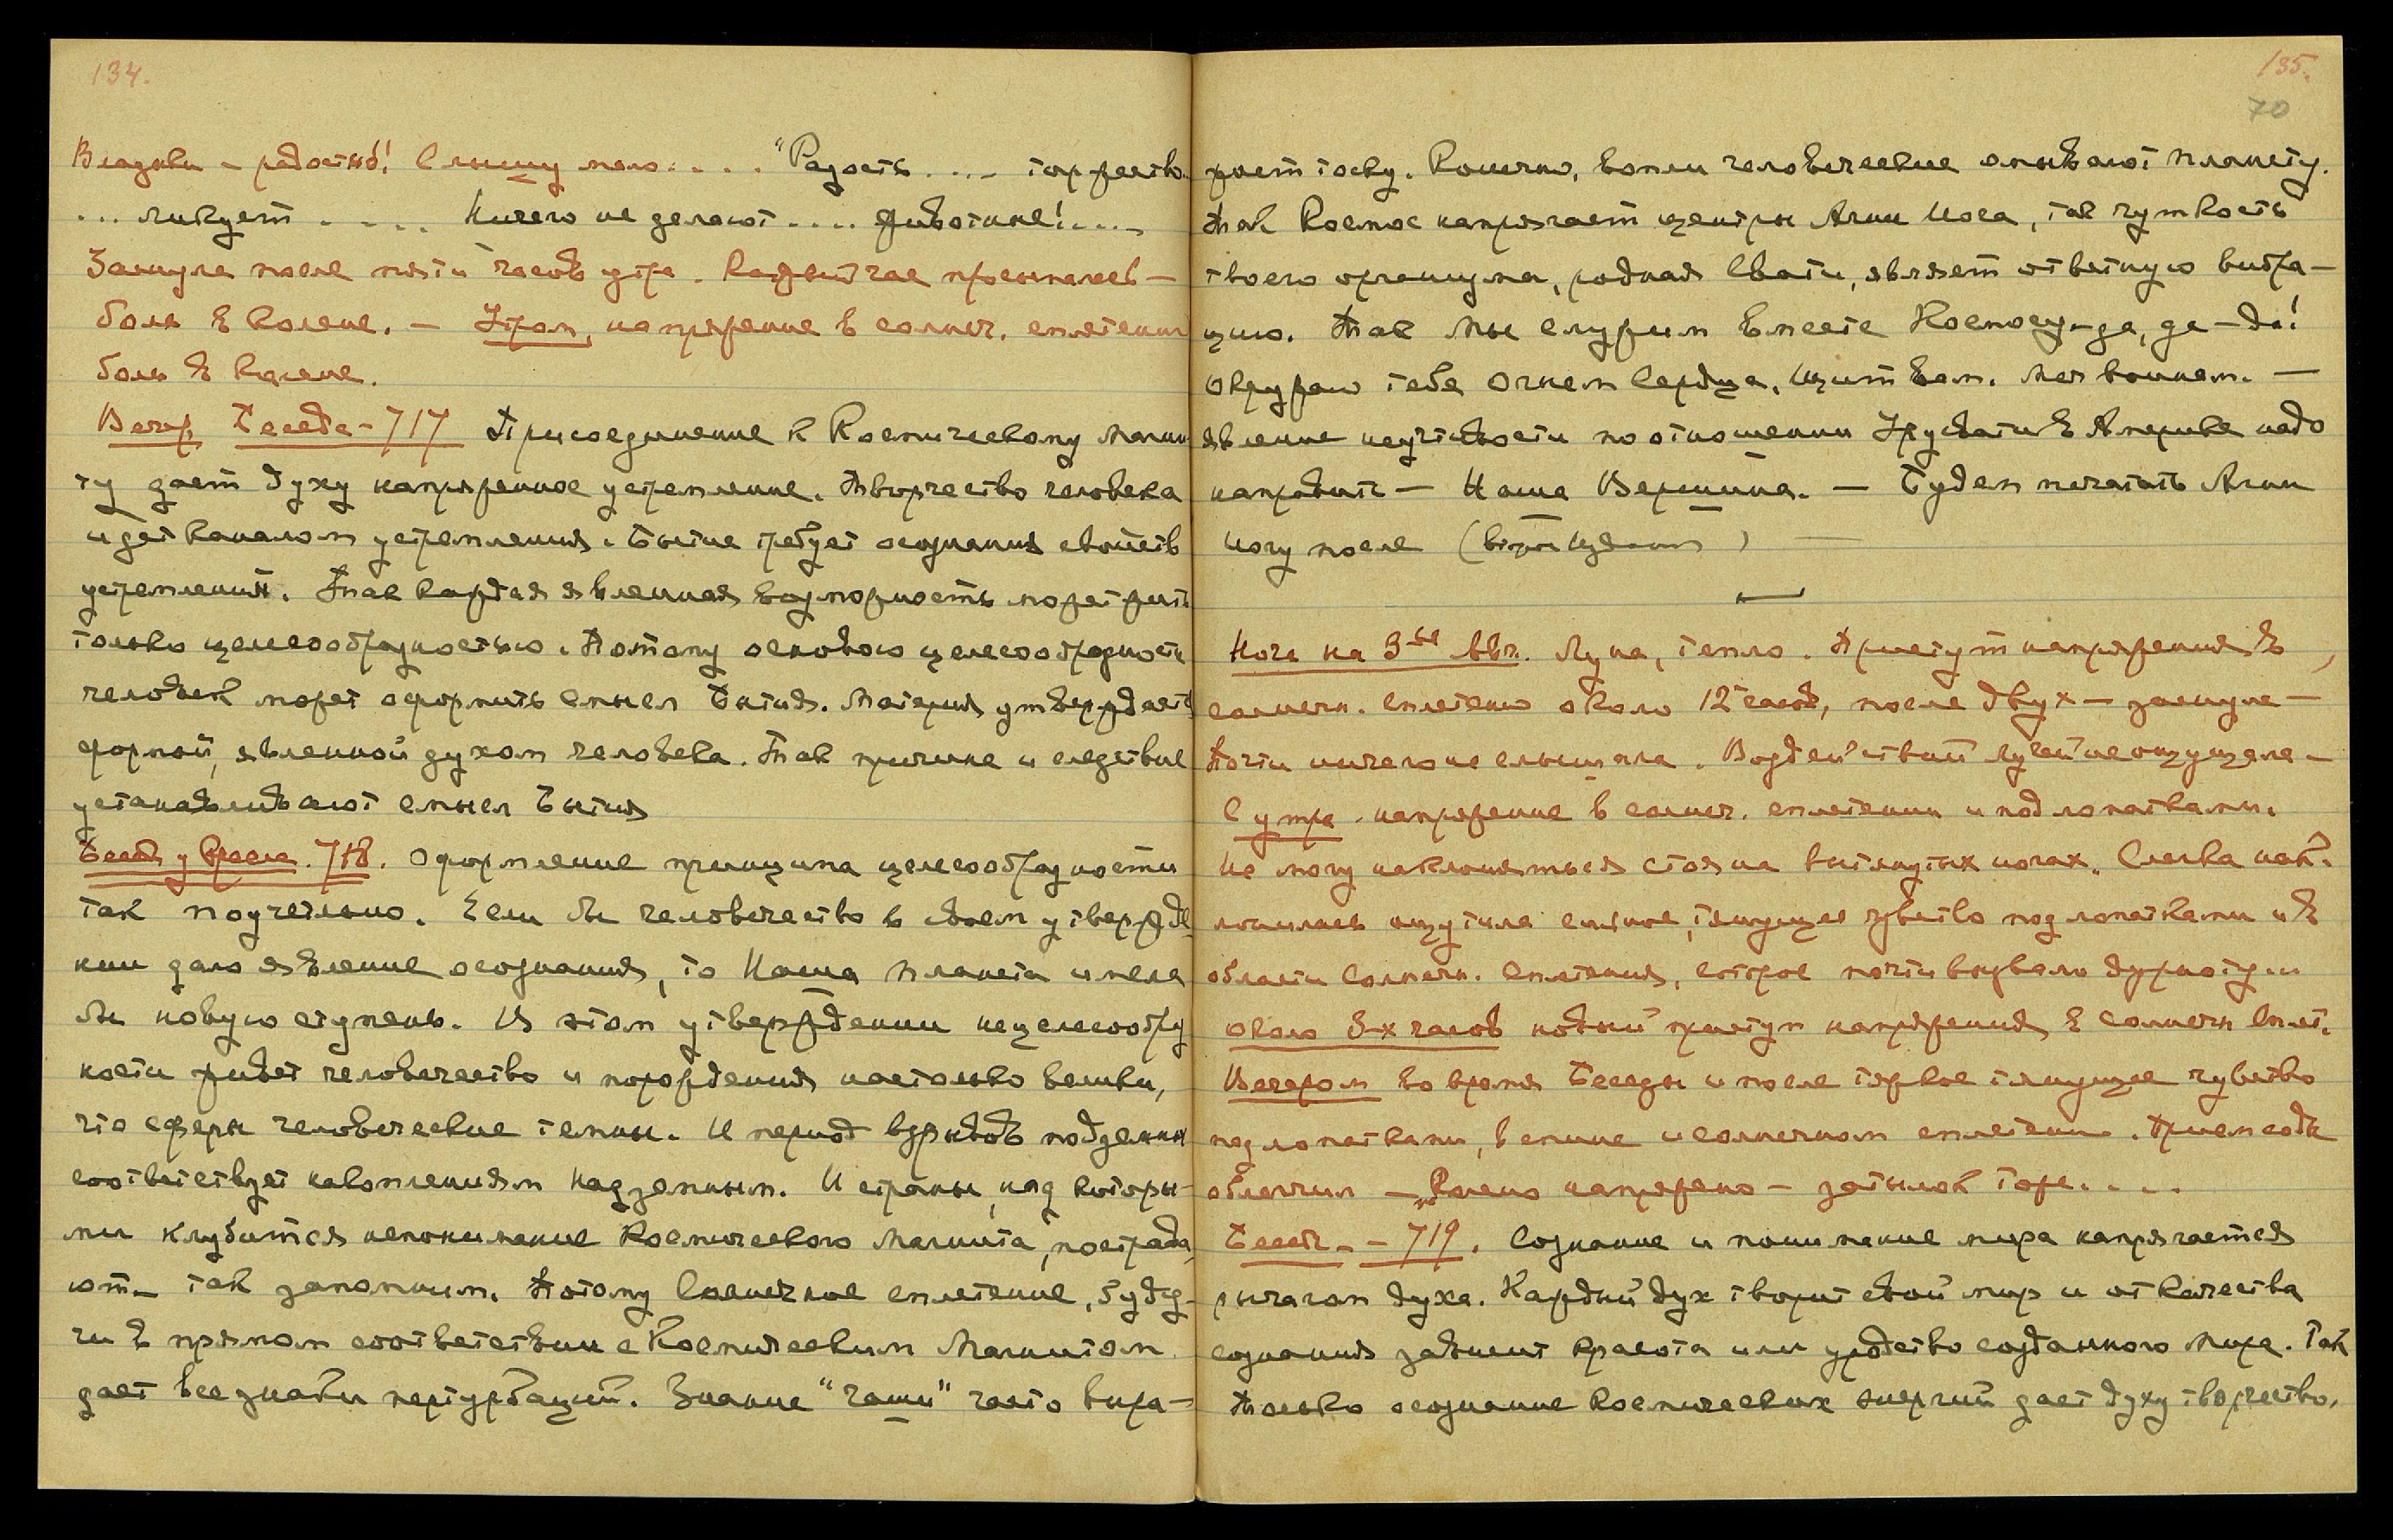 134.
Владыки – радостны! Слышу мало.... "Радость .... торжество.
... ликует .... Ничего не делают .... животные! ....
Заснула после пяти часов утра. Каждый час просыпалась –
боль в колене. – Утром, напряжение в солнеч. сплетении
боль в колене.
Вечер, Беседа – 717 Присоединение к Космическому Магни
ту дает духу напряженное устремление. Творчество человека
идет каналом устремления. Бытие требует осознания свойств
устремления. Так каждая явленная возможность может жить
только целесообразностью. Потому основою целесообразности
человек может оформить смысл Бытия. Материя утверждается
формой, явленной духом человека. Так причина и следствие
устанавливают смысл Бытия
Беседа у Кресла. 718. Оформление принципа целесообразности
так поучительно. Если бы человечество в своем утвержде
нии дало явление осознания, то Наша планета имела
бы новую ступень. В этом утверждении нецелесообраз
ности живет человечество и порождения настолько велики,
что сферы человеческие темны. И период взрывов подземных
соответствует накоплениям надземным. И страны, над которы-
ми клубится непонимание Космического Магнита, пострада
ют – так запомним. Потому Солнечное сплетение, будучи
чи в прямом соответствии с Космическим Магнитом
дает все знаки пертурбаций. Знание "чаши" часто выра-
135.
70
жает тоску. Конечно, вопли человеческие омывают планету.
Так Космос напрягает центры Агни Йога, так чуткость
твоего организма, родная Свати, являет ответную вибра-
цию. Так Мы служим вместе Космосу – да, да – да!
Окружаю тебя Огнем Сердца. Щит вам. Меч воинам. –
Явление неучтивости по отношении Урусвати в Америке надо
направить – Наша Вершина. – Будем печатать Агни
Йогу после (вторым изданием) –
Ночь на 3ье Авг. Луна, тепло. Приступ напряжения в
солнечн. сплетению около 12 часов, после двух – заснула –
Почти ничего не слышала. Воздействий лучей не ощущала –
С утра напряжение в солнеч. сплетении и под лопатками.
Не могу наклоняться стоя на вытянутых ногах. Слегка нак-
лонилась ощутила сильное, тянущее чувство под лопатками и в
области Солнечн. сплетения, которое почти вызвало дурноту. и
около 3-х часов новый приступ напряжения в солнечн. сплет.
Вечером во время Беседы и после тяжкое тянущее чувство
под лопатками, в спине и солнечном сплетении. Прием соды
облегчил – Колено напряжено – затылок тоже....
Беседа – 719. Сознание и понимание мира напрягается
рычагом духа. Каждый дух творит свой мир и от качества
сознания зависит красота или уродство созданного мира. Так
только осознание Космических энергий дает духу творчество,